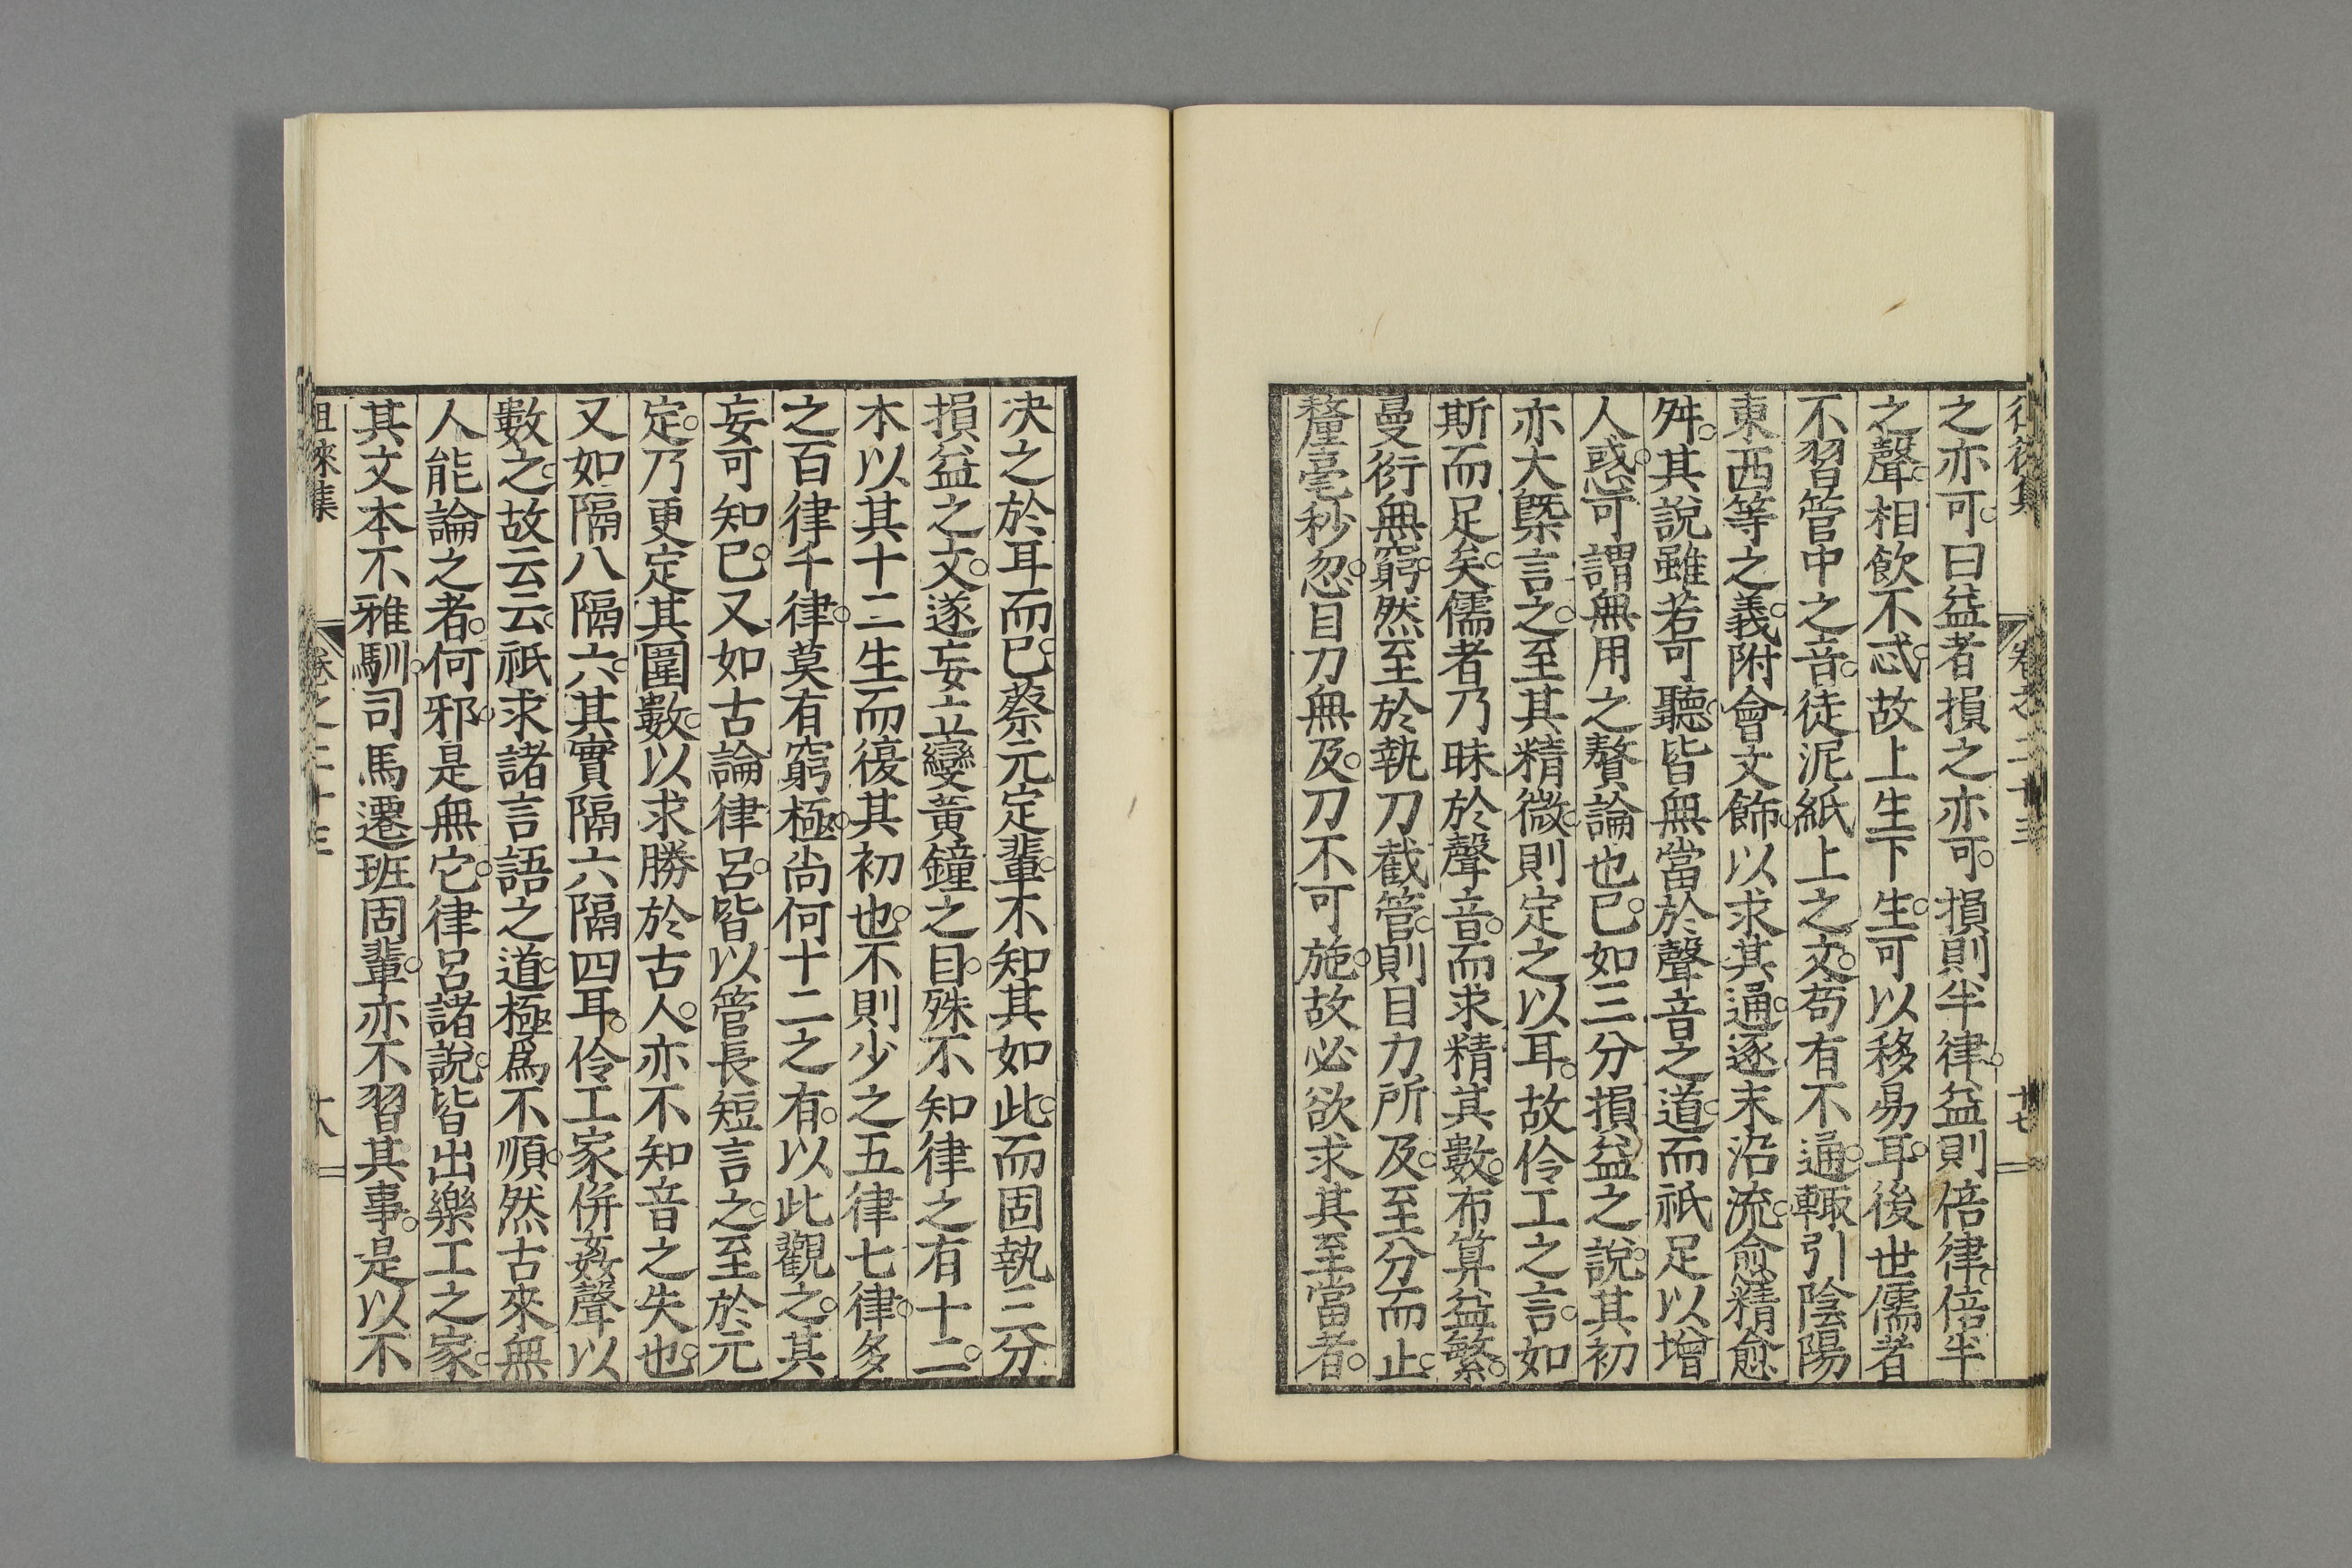 之亦可。曰益者損之亦可。損則半律。益則倍律。倍半
之聲。相飮不忒。故上生下生。可以移易耳。後世儒者
不習管中之音。徒泥紙上之文。苟有不通。輙引陰陽
東西等之義。附會文飾。以求其通。逐末沿流。愈精愈
舛。其說雖若可聽。皆無當於聲音之道。而祇足以增
人惑。可謂無用之贅論也已。如三分損益之說。其初
亦大槩言之。至其精微。則定之以耳。故伶工之言。如
斯而足矣。儒者乃昧於聲音。而求精其數。布算益繁。
曼衍無窮。然至於執刀截管。則目力所及。至分而止。
釐毫秒忽。目刀無及。刀不可施。故必欲求其至當者。
卷之二十三
十七
决之於耳而已。蔡元定輩。不知其如此。而固執三分
損益之文。遂妄立變黃鐘之目。殊不知律之有十二。
本以其十二生而復其初也。不則少之五律七律。多
之百律千律。莫有窮極。尚何十二之有。以此觀之。其
妄可知已。又如古論律呂。皆以管長短言之。至於元
定。乃更定其圍數。以求勝於古人。亦不知音之失也。
又如隔八隔六。其實隔六隔四耳。伶工家併姦聲以
數之。故云云。祇求諸言語之道。極爲不順。然古來無
人能論之者。何邪。是無它。律呂諸說。皆出樂工之家。
其文本不雅馴。司馬遷班固輩。亦不習其事。是以不
徠集
卷之二十三